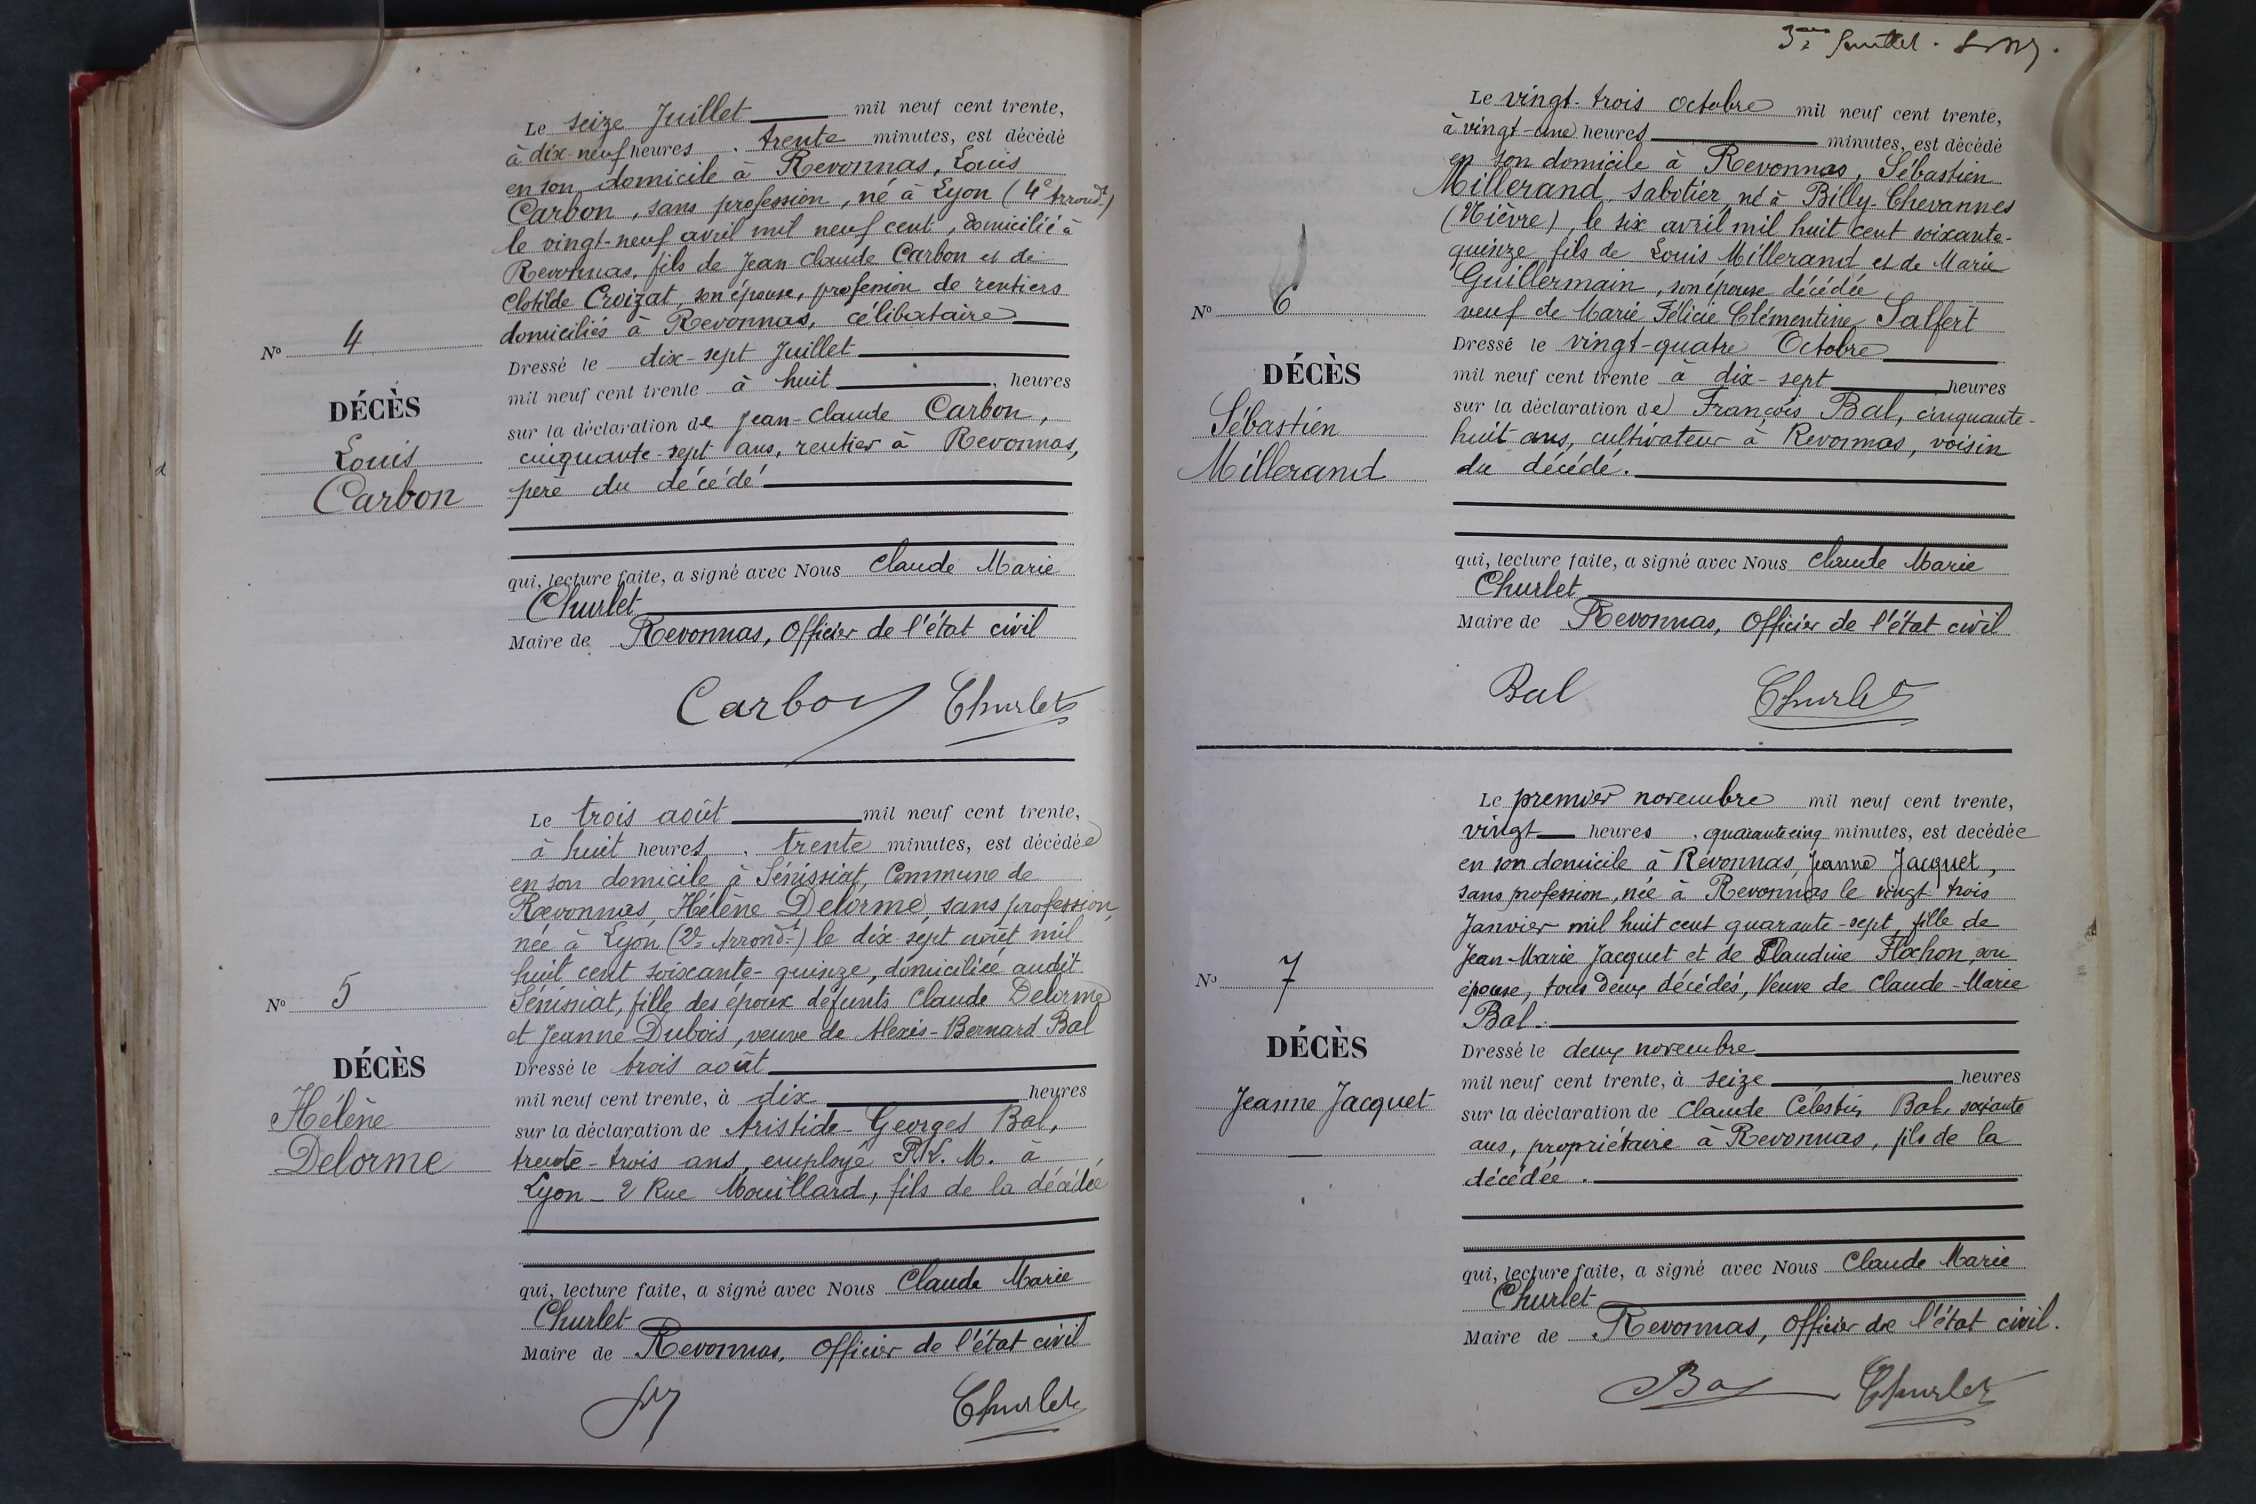 Le seize Juillet mil neuf cent trente,
à dix-neuf heures trente minutes, est décédé
en son domicile à Revonnas, Louis
Carbon, sans profession, né à Lyon (4e Arrondt)
le vingt-neuf avril mil neuf cent, domicilié à
Revonnas, fils de Jean Claude Carbon et de
Clotilde Croizat, son épouse, profession de rentiers
domiciliés à Revonnas, célibataire
Nº 4
DÉCÈS
Louis
Carbon
Dressé le dix-sept Juillet
mil neuf cent trente à huit heures
sur la déclaration de Jean-Claude Carbon,
cinquante-sept ans, rentier à Revonnas,
père du décédé
qui, lecture faite, a signé avec Nous Claude Marie
Churlet
Maire de Revonnas, Officier de l'état civil
Carbon Churlet
Le trois août mil neuf cent trente,
à huit heures trente minutes, est décédée
en son domicile à Sénissiat, Commune de
Revonnas, Hélène Delorme, sans profession,
née à Lyon (2e Arrondt) le dix-sept août mil
huit cent soixante-quinze, domiciliée audit
Sénissiat, fille des époux défunts Claude Delorme
et Jeanne Dubois, veuve de Alexis-Bernard Bal
Nº 5
DÉCÈS
Hélène
Delorme
Dressé le trois août
mil neuf cent trente, à dix heures
sur la déclaration de Aristide Georges Bal,
trente-trois ans, employé P.L.M. à
Lyon - 2 Rue Mouillard, fils de la décédée
qui, lecture faite, a signé avec Nous Claude Marie
Churlet
Maire de Revonnas, Officier de l'état civil
Churlet
Le vingt-trois octobre mil neuf cent trente,
à vingt-une heures minutes, est décédé
en son domicile à Revonnas, Sébastien
Millerand, sabotier, né à Billy-Chevannes
(Nièvre), le six avril mil huit cent soixante-
quinze, fils de Louis Millerand et de Marie
Guillermain, son épouse décédée
veuf de Marie Félicie Clémentine Salfert
Nº 6
DÉCÈS
Sébastien
Millerand
Dressé le vingt-quatre Octobre
mil neuf cent trente à dix-sept heures
sur la déclaration de François Bal, cinquante-
huit ans, cultivateur à Revonnas, voisin
du décédé.
qui, lecture faite, a signé avec Nous Claude Marie
Churlet
Maire de Revonnas, Officier de l'état civil
Bal Churlet
Le premier novembre mil neuf cent trente,
vingt heures quarante cinq minutes, est décédée
en son domicile à Revonnas, Jeanne Jacquet,
sans profession, née à Revonnas le vingt trois
Janvier mil huit cent quarante-sept, fille de
Jean-Marie Jacquet et de Claudine Flochon, son
épouse, tous deux décédés, Veuve de Claude-Marie
Bal.
Nº 7
DÉCÈS
Jeanne Jacquet
Dressé le deux novembre
mil neuf cent trente, à seize heures
sur la déclaration de Claude Célestin Bal, soixante
ans, propriétaire à Revonnas, fils de la
décédée.
qui, lecture faite, a signé avec Nous Claude Marie
Churlet
Maire de Revonnas, Officier de l'état civil.
Bal Churlet